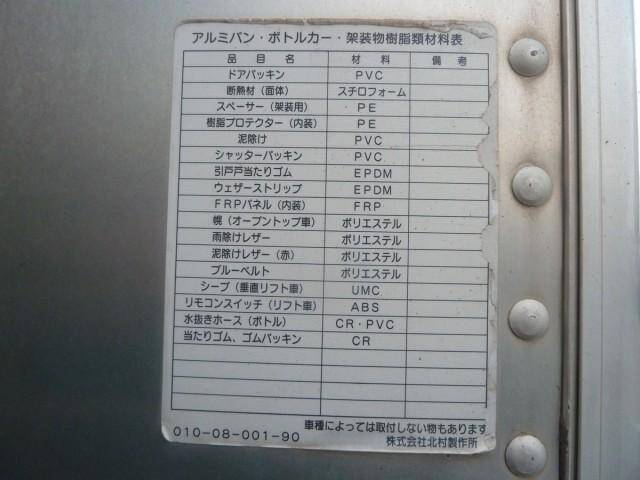 アルミバン・ボトルカー・架装物樹脂類材料表
品目名 材料 備考
ドアパッキン PVC
断熱材（面体） スチロフォーム
スペーサー（架装用） PE
樹脂プロテクター（内装） PE
泥除け PVC
シャッターパッキン PVC
引戸戸当たりゴム EPDM
ウェザーストリップ EPDM
FRPパネル（内装） FRP
幌（オープントップ車） ポリエステル
雨除けレザー ポリエステル
泥除けレザー（赤） ポリエステル
ブルーベルト ポリエステル
シーブ（垂直リフト車） UMC
リモコンスイッチ（リフト車） ABS
水抜きホース（ボトル） CR・PVC
当たりゴム、ゴムパッキン CR
車種によっては取付しない物もあります
010-08-001-90 株式会社北村製作所